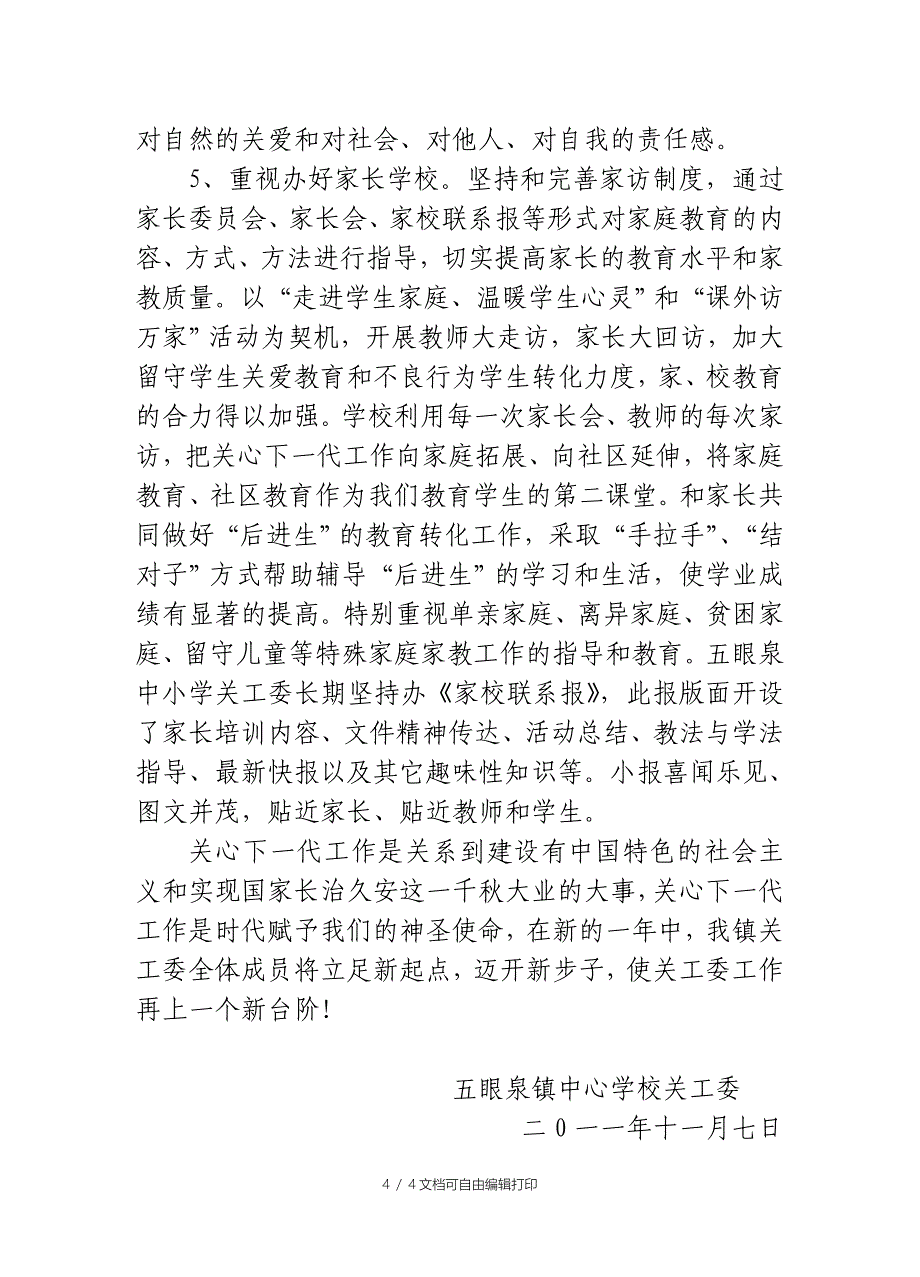 对自然的关爱和对社会、对他人、对自我的责任感。
5、重视办好家长学校。坚持和完善家访制度，通过
家长委员会、家长会、家校联系报等形式对家庭教育的内
容、方式、方法进行指导，切实提高家长的教育水平和家
教质量。以“走进学生家庭、温暖学生心灵”和“课外访
万家”活动为契机，开展教师大走访，家长大回访，加大
留守学生关爱教育和不良行为学生转化力度，家、校教育
的合力得以加强。学校利用每一次家长会、教师的每次家
访，把关心下一代工作向家庭拓展、向社区延伸，将家庭
教育、社区教育作为我们教育学生的第二课堂。和家长共
同做好“后进生”的教育转化工作，采取“手拉手”、“结
对子”方式帮助辅导“后进生”的学习和生活，使学业成
绩有显著的提高。特别重视单亲家庭、离异家庭、贫困家
庭、留守儿童等特殊家庭家教工作的指导和教育。五眼泉
中小学关工委长期坚持办《家校联系报》，此报版面开设
了家长培训内容、文件精神传达、活动总结、教法与学法
指导、最新快报以及其它趣味性知识等。小报喜闻乐见、
图文并茂，贴近家长、贴近教师和学生。
关心下一代工作是关系到建设有中国特色的社会主
义和实现国家长治久安这一千秋大业的大事，关心下一代
工作是时代赋予我们的神圣使命，在新的一年中，我镇关
工委全体成员将立足新起点，迈开新步子，使关工委工作
再上一个新台阶！
五眼泉镇中心学校关工委
二0一一年十一月七日
4 / 4文档可自由编辑打印